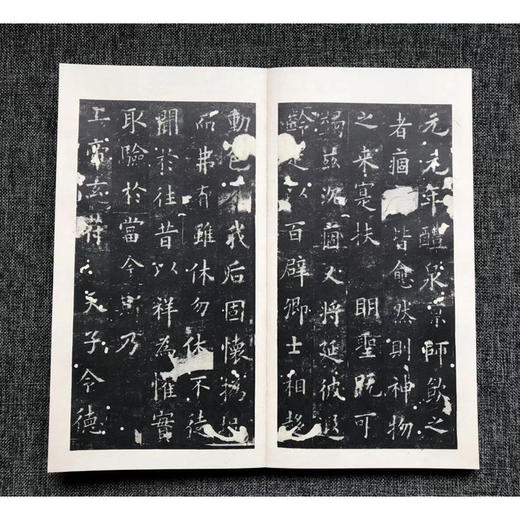 元元年醴泉京師飲之
者痼皆愈然則神物
之来寔扶明聖既可
蠲兹沉痼又將延彼遐
齡是以百辟卿士相趍
動色我后固懷撝挹
而弗有雖休勿休不徒
聞於往昔以祥為懼實
取驗於當今斯乃
上帝玄符天子令德